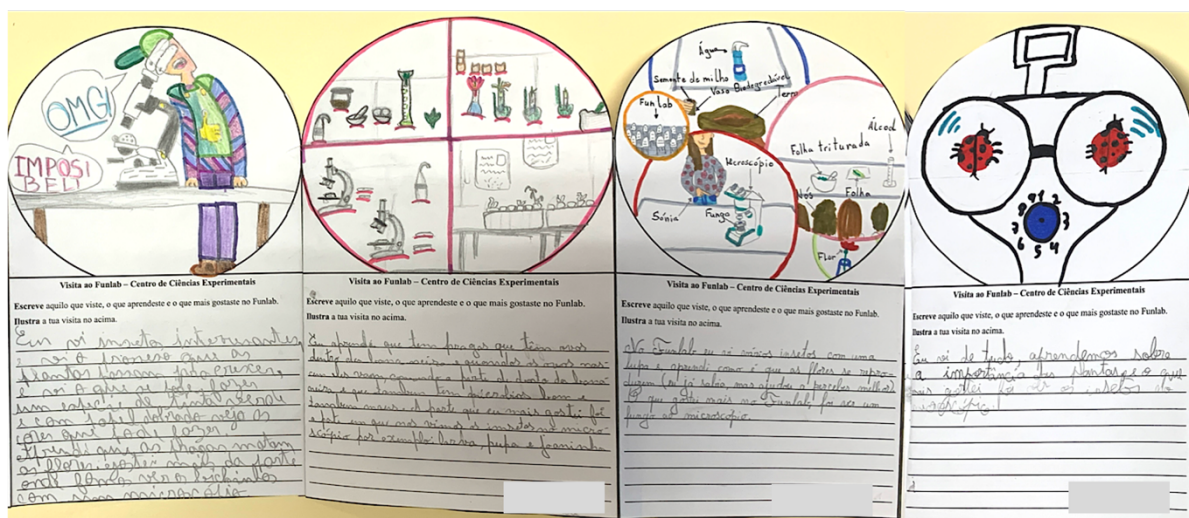 OMG!
IMPOSI
BEL!
Visita ao Funlab – Centro de Ciências Experimentais
Escreve aquilo que viste, o que aprendeste e o que mais gostaste no Funlab.
Ilustra a tua visita no acima.
Eu vi insetos interessantes
vi o processo que as
plantas passam para crescer,
e vi o que se pode fazer
com papel dobrado veja a
cores que pode fazer.
Aprendi que as matam
as flores gostei mais da parte
onde fomos ver os bichinhos
com um
Visita ao Funlab – Centro de Ciências Experimentais
Escreve aquilo que viste, o que aprendeste e o que mais gostaste no Funlab.
Ilustra a tua visita no acima.
Eu aprendi que tem pragas que têm ovos
dentro da
e que também tem
também maus. A part que eu mais gostei foi
a part em que nos vimos os insetos no micro
scópio por exemplo: larva, pupa e joaninha
Água
Semente de milho
Vaso Biodegradável
Terra
Fun Lab
Álcool
Folha triturada
Microscópio
Folha
Nós
Sónia
Fungo
Flor
Visita ao Funlab – Centro de Ciências Experimentais
Escreve aquilo que viste, o que aprendeste e o que mais gostaste no Funlab.
Ilustra a tua visita no acima.
No Funlab eu vi vários insetos com uma
lupa e aprendi como é que as flores se repro-
duzem (eu já sabia, mas ajudou a perceber melhor)
O que gostei mais no Funlab, foi ver um
fungo ao microscópio.
9 1 2
8 3
7
6 5 4
Visita ao Funlab – Centro de Ciências Experimentais
Escreve aquilo que viste, o que aprendeste e o que mais gostaste no Funlab.
Ilustra a tua visita no acima.
Eu vi de tudo, aprendemos sobre
a importância das plantas e o que
mais gostei foi ver os insetos ao